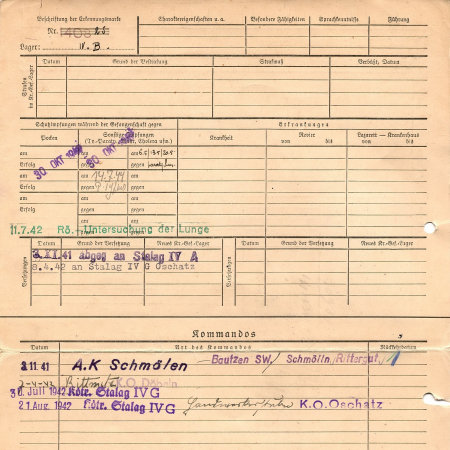 Beschriftung der Erkennungsmarke
Charaktereigenschaften u. a.
Besondere Fähigkeiten
Sprachkenntnisse
Führung
Nr.
Lager: IV. B.
Datum
Grund der Bestrafung
Strafmaß
Verbüßt, Datum
Strafen im Kr.-Gef.-Lager
Schutzimpfungen während der Gefangenschaft gegen
Erkrankungen
Pocken
Sonstige Impfungen
(Ty.-Paraty., Ruhr, Cholera usw.)
Krankheit
Revier
von bis
Lazarett — Krankenhaus
von bis
am
am
Erfolg
gegen
30 OKT 30 OKT
am
am
Erfolg
gegen
am
am
Erfolg
gegen
am
am
Erfolg
gegen
11.7.42 Rö.- Untersuchung der Lunge
Versetzungen
Datum
Grund der Versetzung
Neues Kr.-Gef.-Lager
Versetzungen
Datum
Grund der Versetzung
Neues Kr.-Gef.-Lager
41 abgeg an Stalag IV A
8.4.42 an Stalag IV G Oschatz
Kommandos
Datum
Art des Kommandos
Rückkehrdatum
11.41 A.K Schmölen Bautzen SW/ Schmölln, Rittergut, 1
K.O. Döbeln
Juli 1942 Kdtr. Stalag IV G
21 Aug. 1942 Kdtr. Stalag IV G K.O. Oschatz